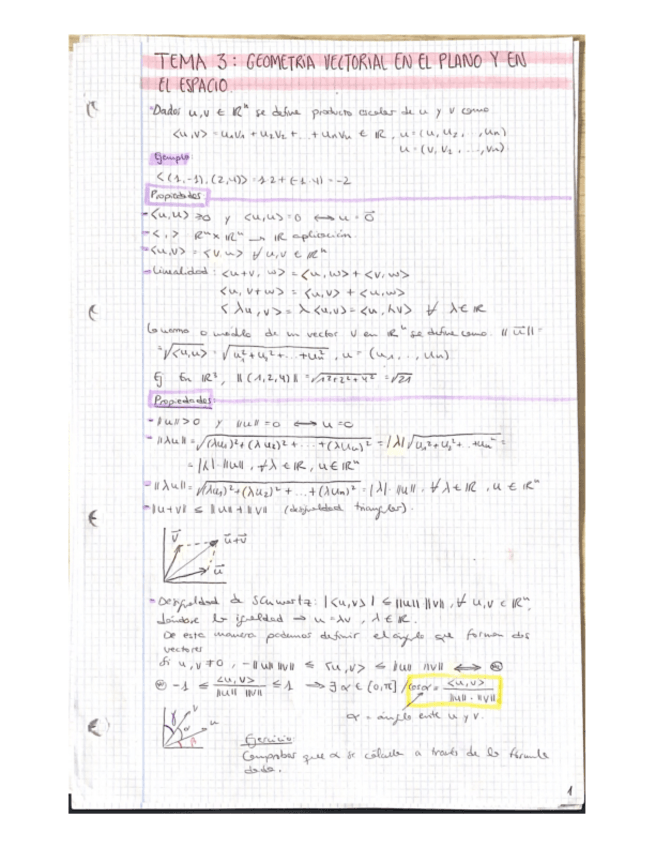 TEMA 3: GEOMETRÍA VECTORIAL EN EL PLANO Y EN
EL ESPACIO.
Dados u,v ∈ ℝⁿ se define producto escalar de u y v como
<u,v> = u₁v₁ + u₂v₂ + .. + uₙvₙ ∈ ℝ, u = (u, u₂, ..., uₙ)
u = (v, v₂, ..., vₙ)
Ejemplo
<(1,-1), (2,4)> = 1·2 + (-1·4) = -2
Propiedades:
- <u,u> ≥ 0 y <u,u> = 0 ⟷ u = 0⃗
- < , > ℝⁿ × ℝⁿ → ℝ aplicación.
- <u,v> = <v,u> ∀ u,v ∈ ℝⁿ
- Linealidad: <u+v, w> = <u,w> + <v,w>
<u, v+w> = <u,v> + <u,w>
<λu,v> = λ<u,v> = <u,λv> ∀ λ ∈ ℝ
La norma o módulo de un vector v en ℝⁿ se define como ||u⃗|| =
= √<u,u> = √u₁²+u₂²+...+uₙ², u = (u₁, .., uₙ)
Ej En ℝ³, ||(1,2,4)|| = √1²+2²+4² = √21
Propiedades:
- ||u|| > 0 y ||u|| = 0 ⟷ u = 0
- ||λu|| = √(λu₁)²+(λu₂)²+...+(λuₙ)² = |λ| √u₁²+u₂²+..+uₙ² =
= |λ|·||u||, ∀ λ ∈ ℝ, u ∈ ℝⁿ
- ||λu|| = √(λu₁)²+(λu₂)²+...+(λuₙ)² = |λ|·||u||, ∀ λ ∈ ℝ, u ∈ ℝⁿ
- ||u+v|| ≤ ||u|| + ||v|| (desigualdad triangular).
v⃗
u⃗+v⃗
u⃗
- Desigualdad de Schwartz: |<u,v>| ≤ ||u|| ||v||, ∀ u,v ∈ ℝⁿ,
la igualdad → u = λv, λ ∈ ℝ.
De esta manera podemos definir el ángulo que forman dos
vectores
Si u,v ≠ 0, -||u|| ||v|| ≤ <u,v> ≤ ||u|| ||v|| ⟺
-1 ≤ <u,v> / ||u|| ||v|| ≤ 1 → ∃ α ∈ [0,π] / cosα = <u,v> / ||u||·||v||
α = ángulo entre u y v.
γ v
α u
β
Ejercicio
Comprobar que α se calcula a través de la fórmula
dada.
1